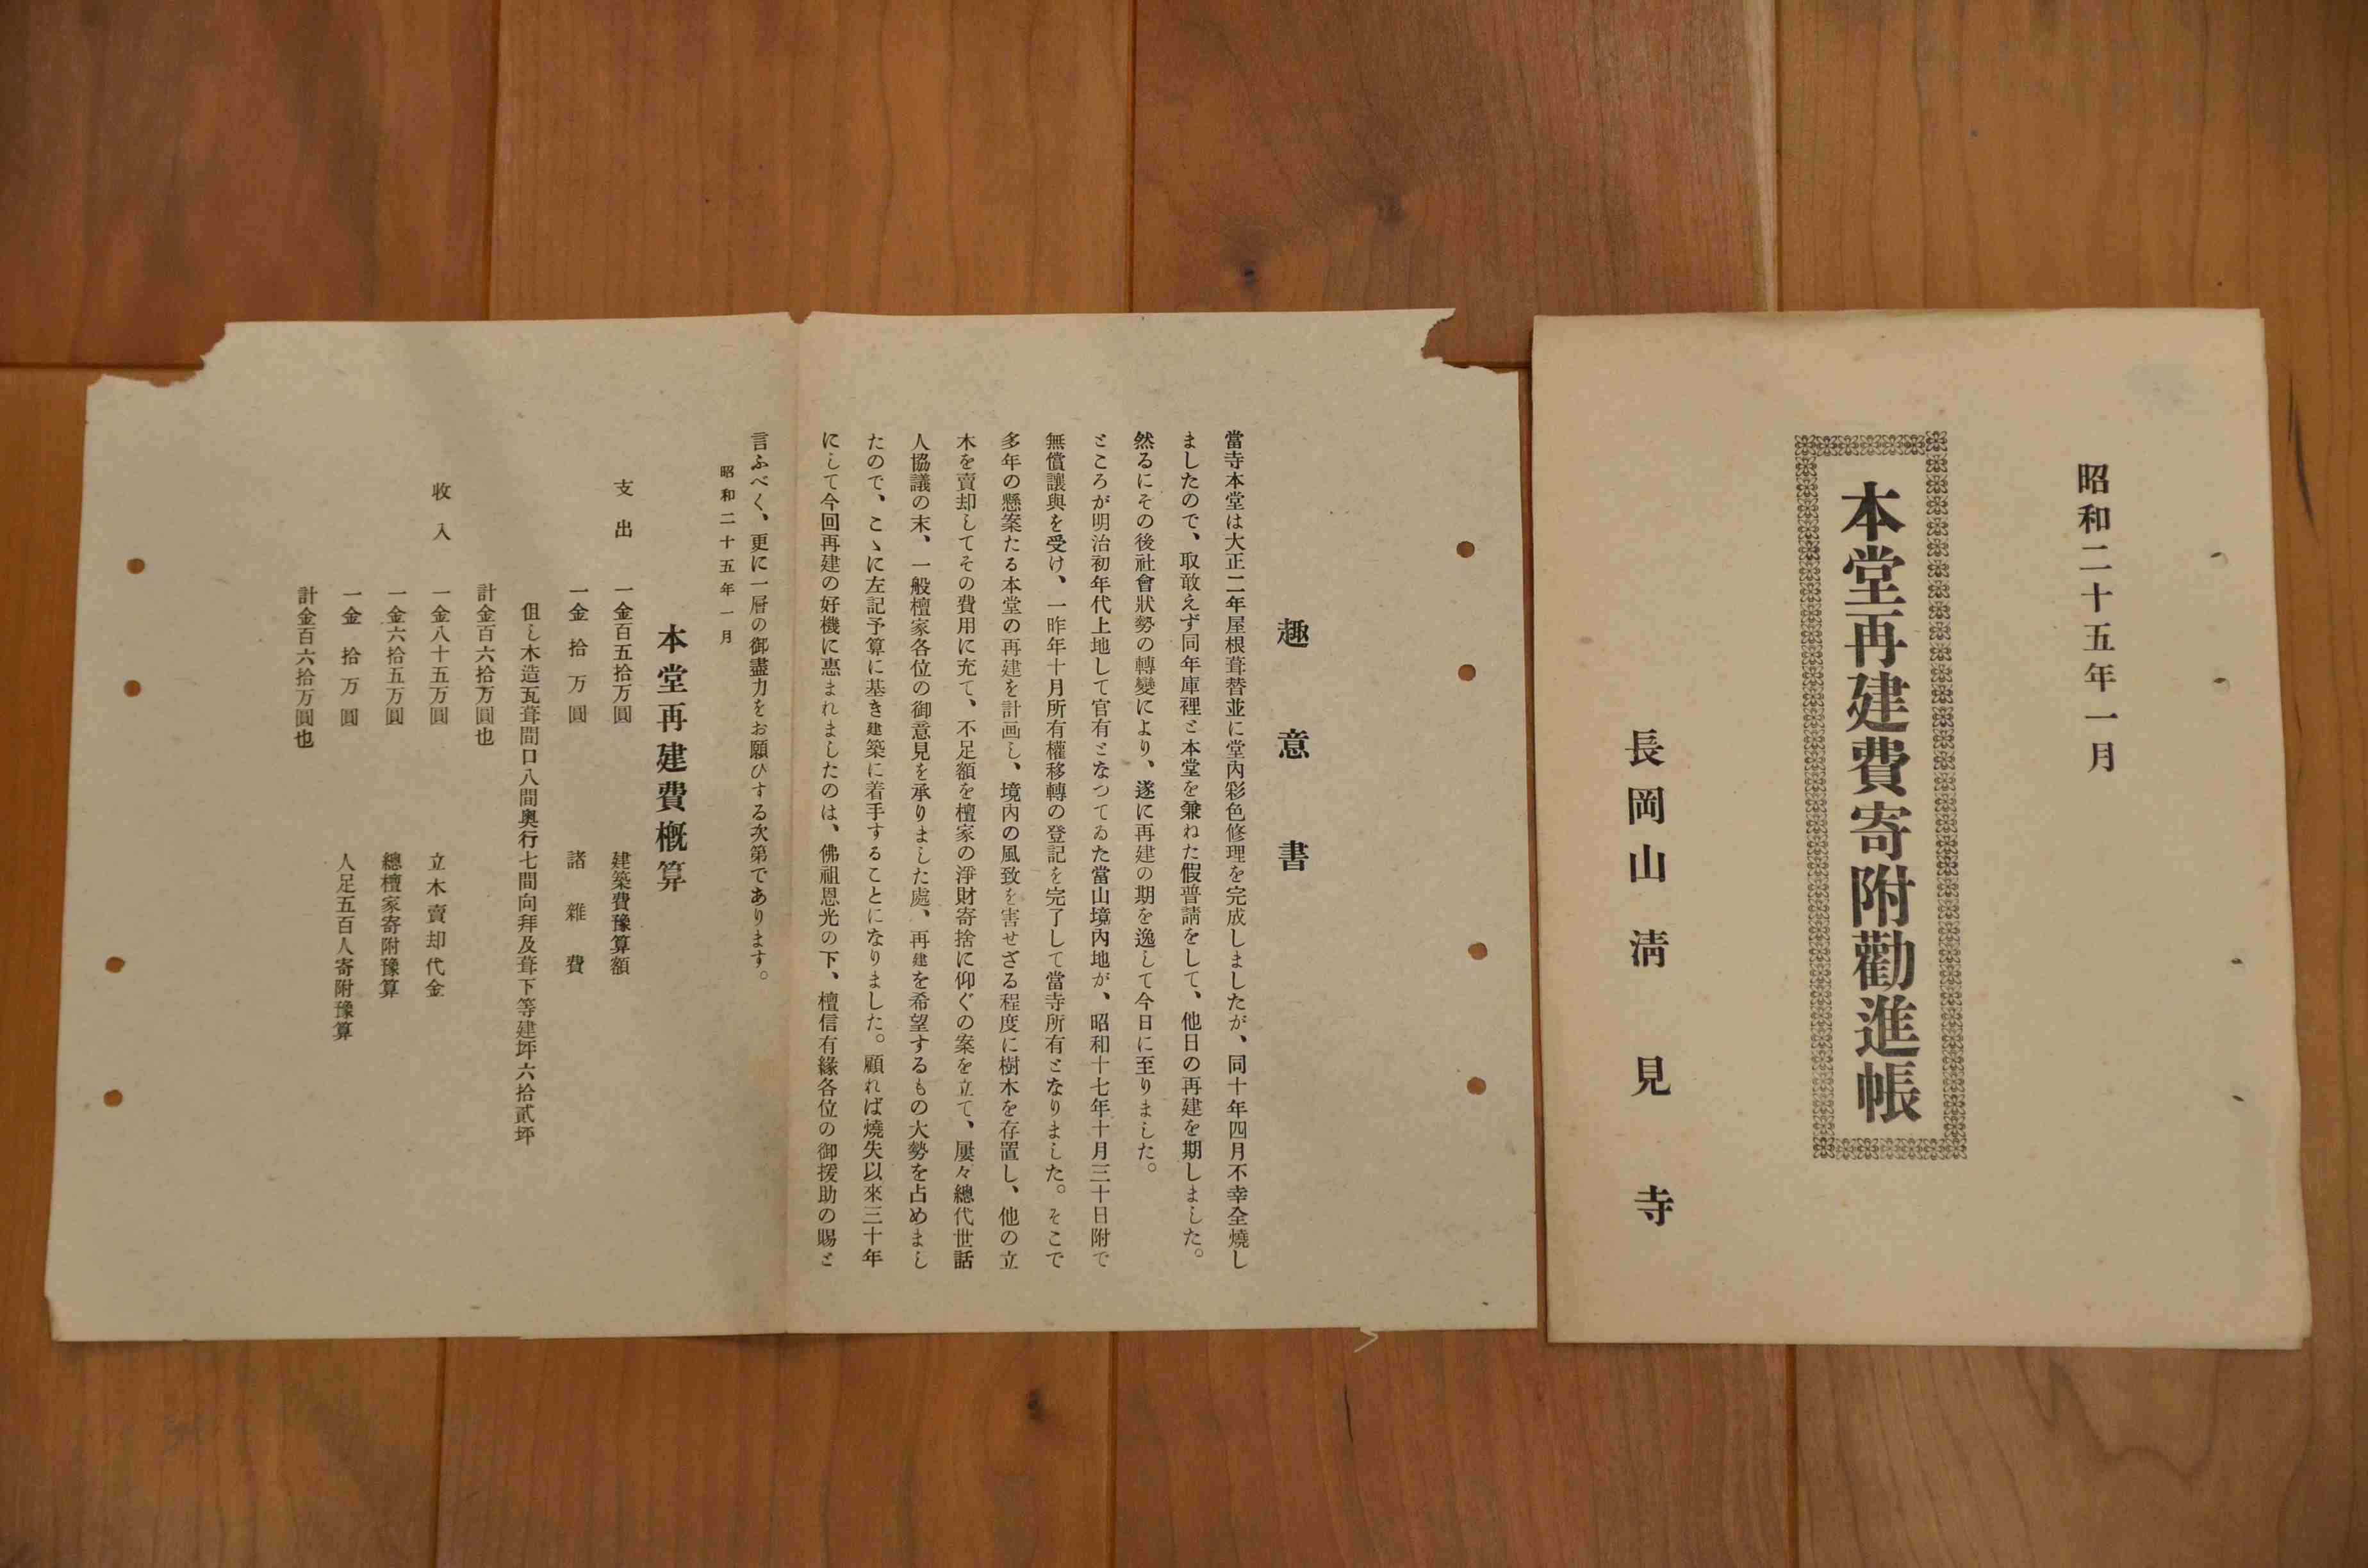 昭和二十五年一月
本堂再建費寄附勸進帳
長岡山淸見寺
趣意書
當寺本堂は大正二年屋根葺替並に堂內彩色修理を完成しましたが、同十年四月不幸全燒し
ましたので、取敢えず同年庫裡と本堂を兼ねた假普請をして、他日の再建を期しました。
然るにその後社會狀勢の轉變により、遂に再建の期を逸して今日に至りました。
ところが明治初年代上地して官有となつてゐた當山境內地が、昭和十七年十月三十日附で
無償讓與を受け、一昨年十月所有權移轉の登記を完了して當寺所有となりました。そこで
多年の懸案たる本堂の再建を計画し、境內の風致を害せざる程度に樹木を存置し、他の立
木を賣却してその費用に充て、不足額を檀家の淨財寄捨に仰ぐの案を立て、屢々總代世話
人協議の末、一般檀家各位の御意見を承りました處、再建を希望するもの大勢を占めまし
たので、こゝに左記予算に基き建築に着手することになりました。顧れば燒失以來三十年
にして今回再建の好機に惠まれましたのは、佛祖恩光の下、檀信有緣各位の御援助の賜と
言ふべく、更に一層の御盡力をお願ひする次第であります。
昭和二十五年一月
本堂再建費槪算
支出 一金百五拾万圓 建築費豫算額
一金拾万圓 諸雜費
但し木造瓦葺間口八間奧行七間向拜及葺下等建坪六拾貳坪
計金百六拾万圓也
收入 一金八十五万圓 立木賣却代金
一金六拾五万圓 總檀家寄附豫算
一金拾万圓 人足五百人寄附豫算
計金百六拾万圓也